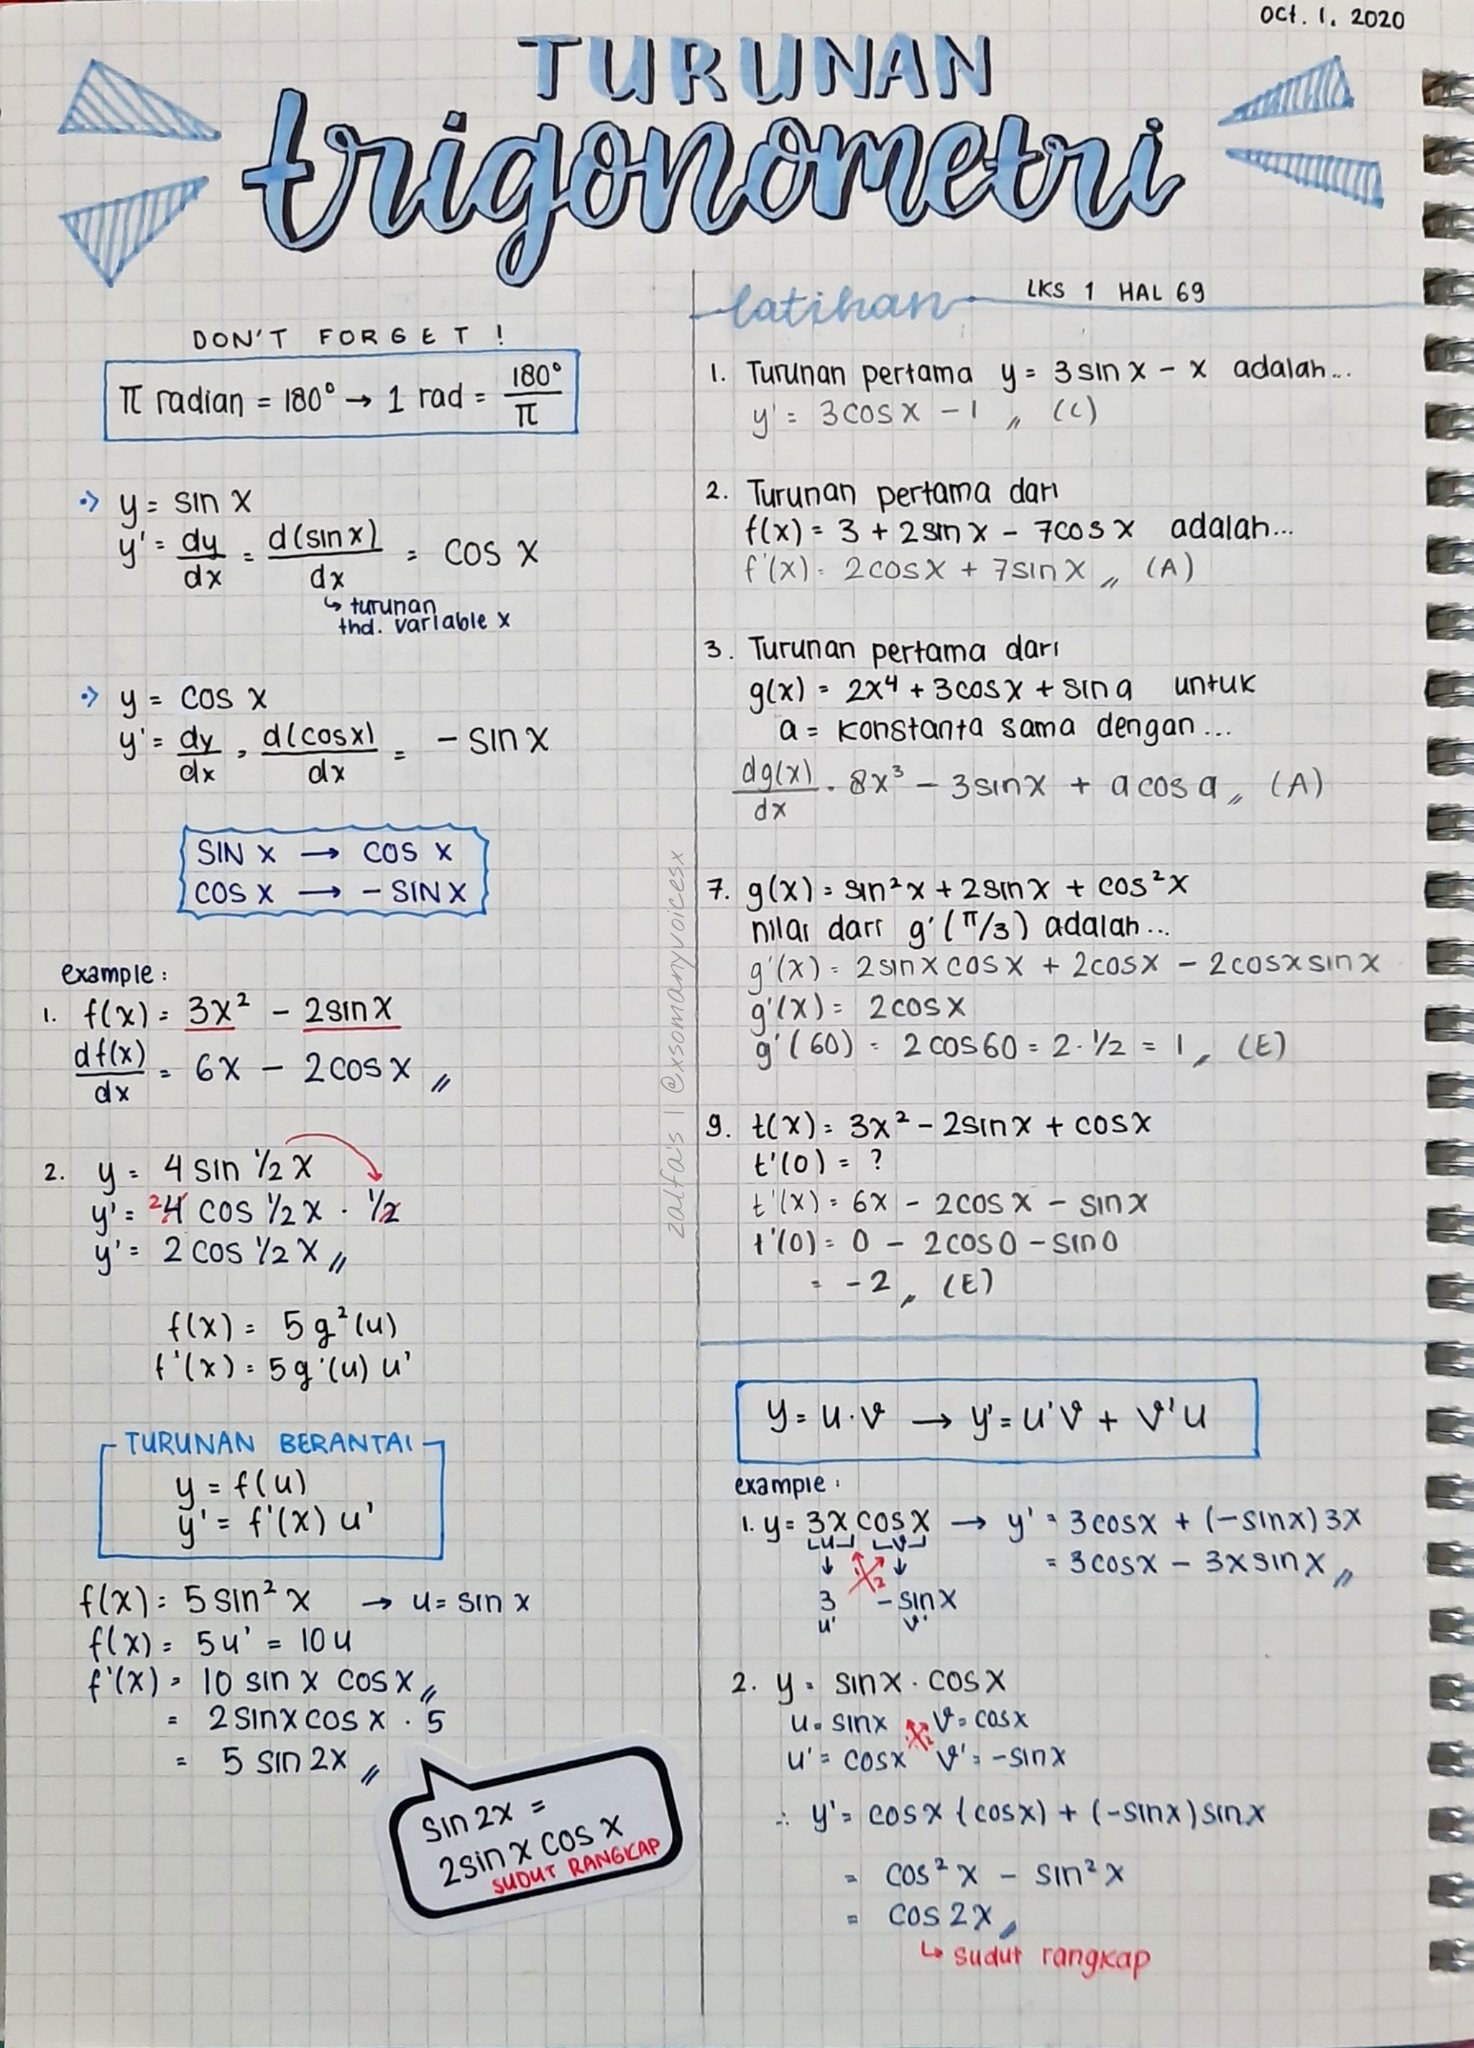 Oct. 1, 2020
TURUNAN
trigonometri
DON'T FORGET !
π radian = 180° → 1 rad = 180°/π
y = sin x
y' = dy/dx = d(sin x)/dx = cos x
↳ turunan
thd. variable x
y = cos x
y' = dy/dx = d(cos x)/dx = - sin x
SIN x → COS x
COS x → - SIN x
example :
1. f(x) = 3x² - 2 sin x
df(x)/dx = 6x - 2 cos x //
2. y = 4 sin 1/2 x
y' = ²4 cos 1/2 x · 1/2
y' = 2 cos 1/2 x //
f(x) = 5 g²(u)
f'(x) = 5 g'(u) u'
TURUNAN BERANTAI
y = f(u)
y' = f'(x) u'
f(x) = 5 sin² x → u = sin x
f(x) = 5u' = 10u
f'(x) = 10 sin x cos x //
= 2 sin x cos x · 5
= 5 sin 2x //
sin 2x =
2 sin x cos x
SUDUT RANGKAP
zalfa's | @xsomanyvoicesx
latihan LKS 1 HAL 69
1. Turunan pertama y = 3 sin x - x adalah...
y' = 3 cos x - 1 // (C)
2. Turunan pertama dari
f(x) = 3 + 2 sin x - 7 cos x adalah...
f'(x) = 2 cos x + 7 sin x // (A)
3. Turunan pertama dari
g(x) = 2x⁴ + 3 cos x + sin a untuk
a = konstanta sama dengan...
dg(x)/dx = 8x³ - 3 sin x + a cos a // (A)
7. g(x) = sin² x + 2 sin x + cos² x
nilai dari g'(π/3) adalah...
g'(x) = 2 sin x cos x + 2 cos x - 2 cos x sin x
g'(x) = 2 cos x
g'(60) = 2 cos 60 = 2 · 1/2 = 1 // (E)
9. t(x) = 3x² - 2 sin x + cos x
t'(0) = ?
t'(x) = 6x - 2 cos x - sin x
t'(0) = 0 - 2 cos 0 - sin 0
= -2 // (E)
y = u · v → y' = u'v + v'u
example :
1. y = 3x cos x → y' = 3 cos x + (- sin x) 3x
u v = 3 cos x - 3x sin x //
1 2
3 - sin x
u' v'
2. y = sin x · cos x
u = sin x v = cos x
1 2
u' = cos x v' = - sin x
∴ y' = cos x (cos x) + (- sin x) sin x
= cos² x - sin² x
= cos 2x //
↳ sudut rangkap